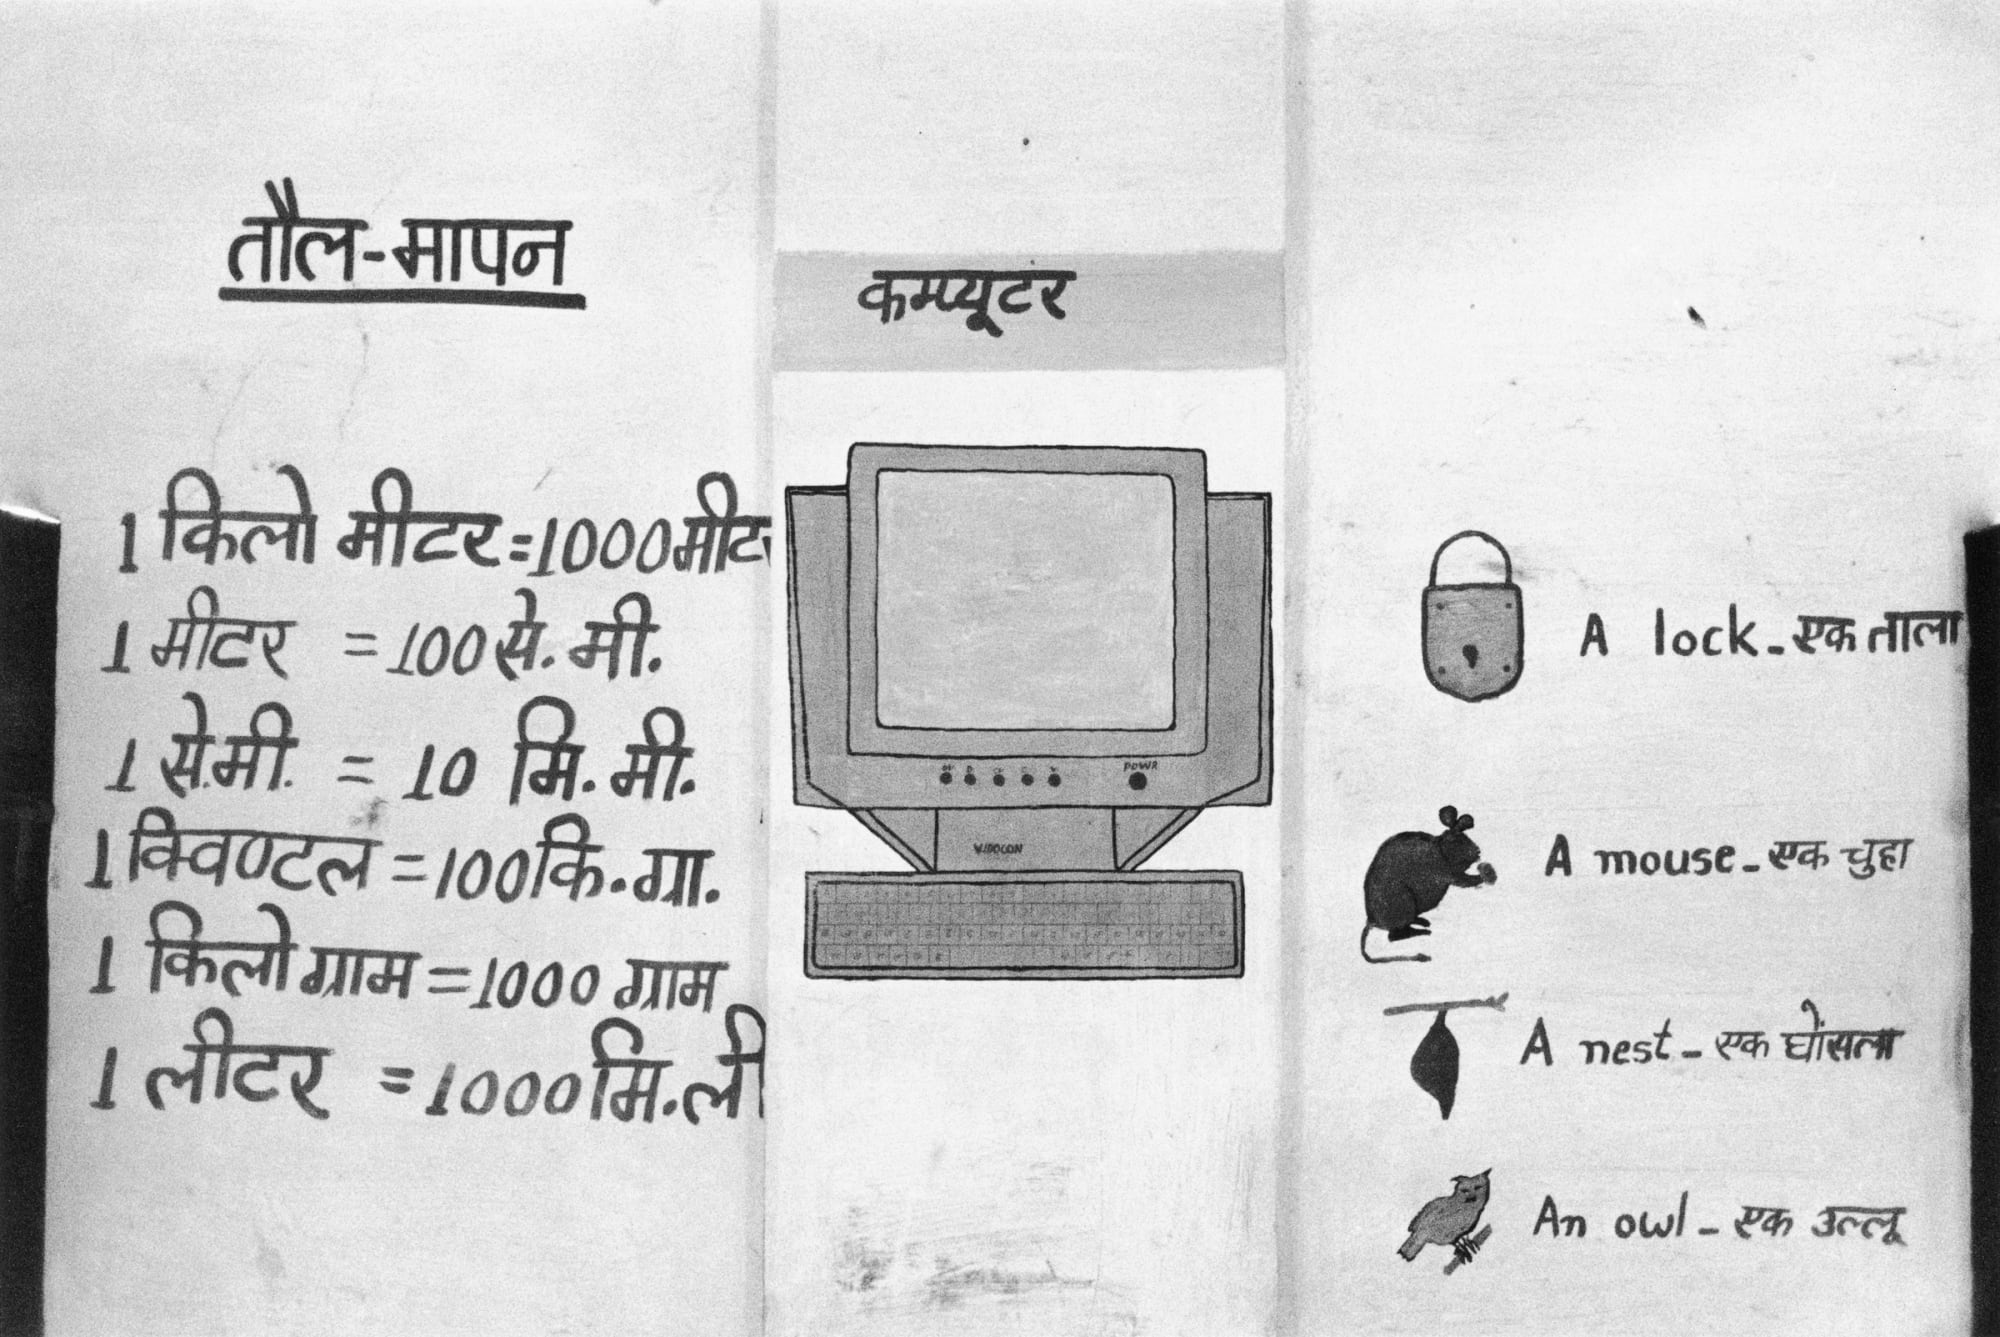 तौल-मापन
1 किलो मीटर=1000मीटर
1 मीटर = 100 से. मी.
1 से.मी. = 10 मि. मी.
1 क्विण्टल = 100 कि. ग्रा.
1 किलो ग्राम = 1000 ग्राम
1 लीटर = 1000 मि.ली
कम्प्यूटर
POWR
VIDOCON
A lock - एक ताला
A mouse - एक चुहा
A nest - एक घोंसला
An owl - एक उल्लू